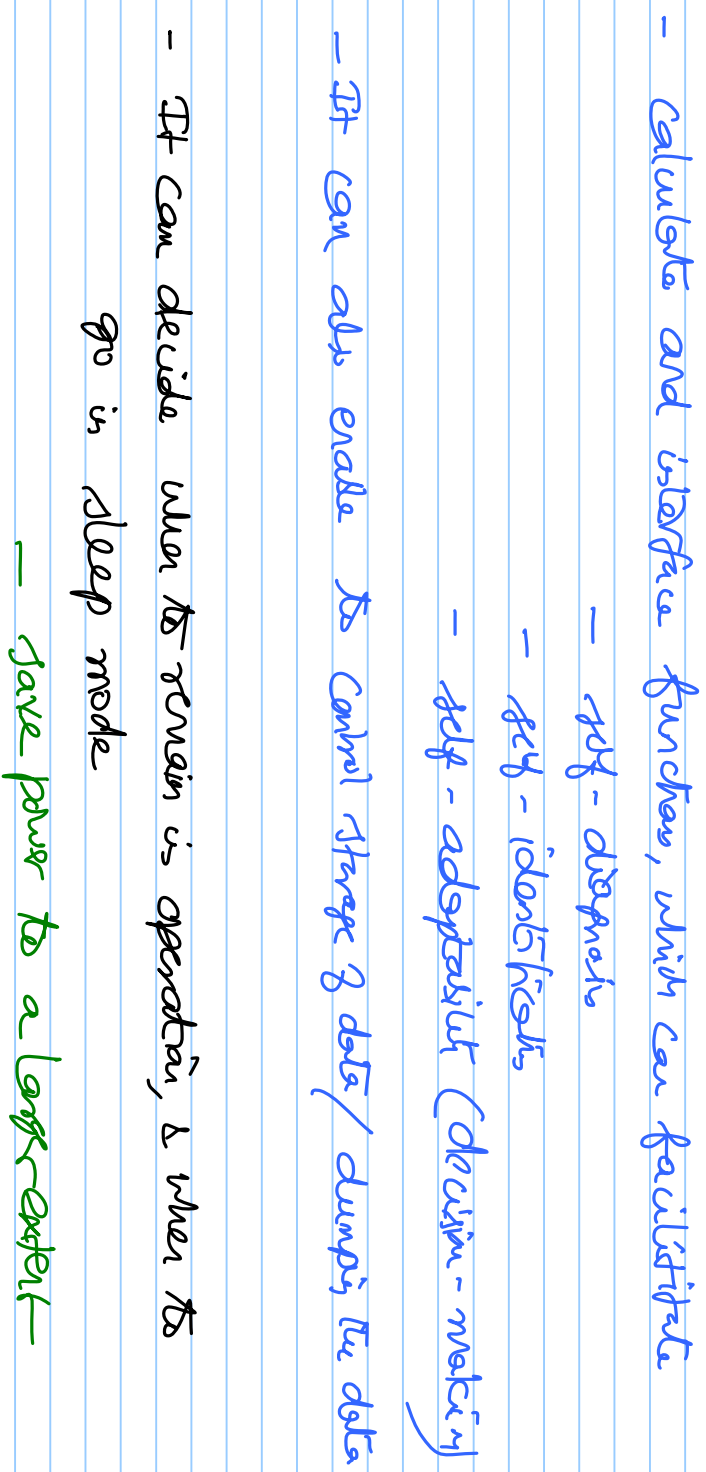 - Calculate and interface functions, which can facilitate
- self-diagnosis
- self-identification
- self-adaptability (decision-making)
- It can also enable to control storage of data/ dumping the data
- It can decide when to remain in operation, & when to
go in sleep mode
- save power to a larger-extent